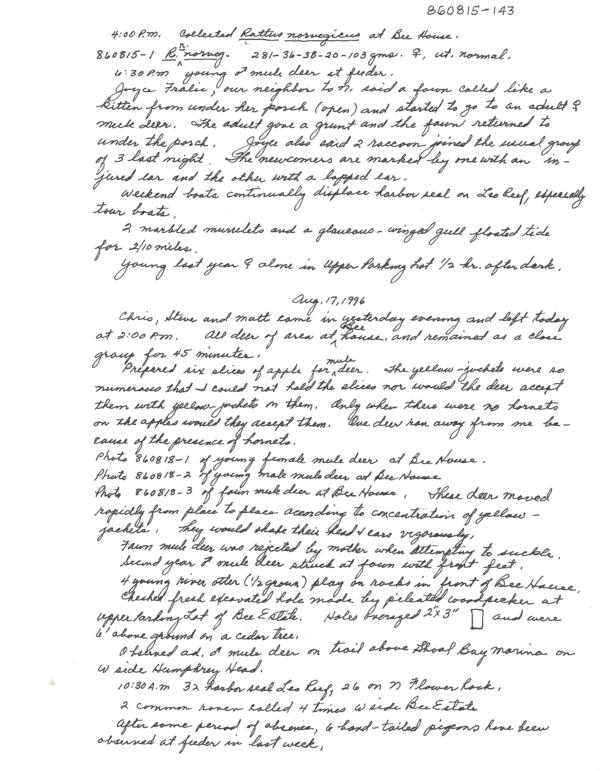 860815-143
4:00 P.M. Collected Rattus norvegicus at Bee House.
860815-1 R. norveg. 281-36-38-20-103 gms. ♀, ut. normal.
6:30 P.M. young ♂ mule deer at feeder.
Joyce Fralic, our neighbor to N. said a fawn called like a
kitten from under her porch (open) and started to go to an adult ♀
mule deer. The adult gave a grunt and the fawn returned to
under the porch. Joyce also said 2 raccoon joined the usual group
of 3 last night. The newcomers are marked by one with an in-
jured ear and the other with a lopped ear.
Weekend boats continually displace harbor seal on Leo Reef, especially
tour boats.
2 marbled murrelets and a glaucous-winged gull floated tide
for 2/10 miles.
Young last year ♀ alone in Upper Parking Lot 1/2 hr. after dark.
Aug. 17, 1996
Chris, Steve and Matt came in yesterday evening and left today
at 2:00 P.M. All deer of area at Bee house, and remained as a close
group for 45 minutes.
Prepared six slices of apple for mule deer. The yellow-jackets were so
numerous that I could not hold the slices nor would the deer accept
them with yellow-jackets on them. Only when there were no hornets
on the apples would they accept them. One deer ran away from me be-
cause of the presence of hornets.
Photo 860818-1 of young female mule deer at Bee House.
Photo 860818-2 of young male mule deer at Bee House
Photo 860818-3 of fawn mule deer at Bee House. These deer moved
rapidly from place to place according to concentration of yellow-
jackets. They would shake their head & ears vigorously.
Fawn mule deer was rejected by mother when attempting to suckle.
Second year ♂ mule deer struck at fawn with front feet.
4 young river otter (1/2 grown) play on rocks in front of Bee House.
Checked fresh excavated hole made by pileated woodpecker at
Upper Parking Lot of Bee Estate. Holes averaged 2"x3" and were
6' above ground on a cedar tree.
Observed ad. ♂ mule deer on trail above Shoal Bay marina on
W side Humphrey Head.
10:30 A.M 32 harbor seal Leo Reef, 26 on N Flower Rock.
2 common raven called 4 times W side Bee Estate
After some period of absence, 6 band-tailed pigeons have been
observed at feeder in last week.